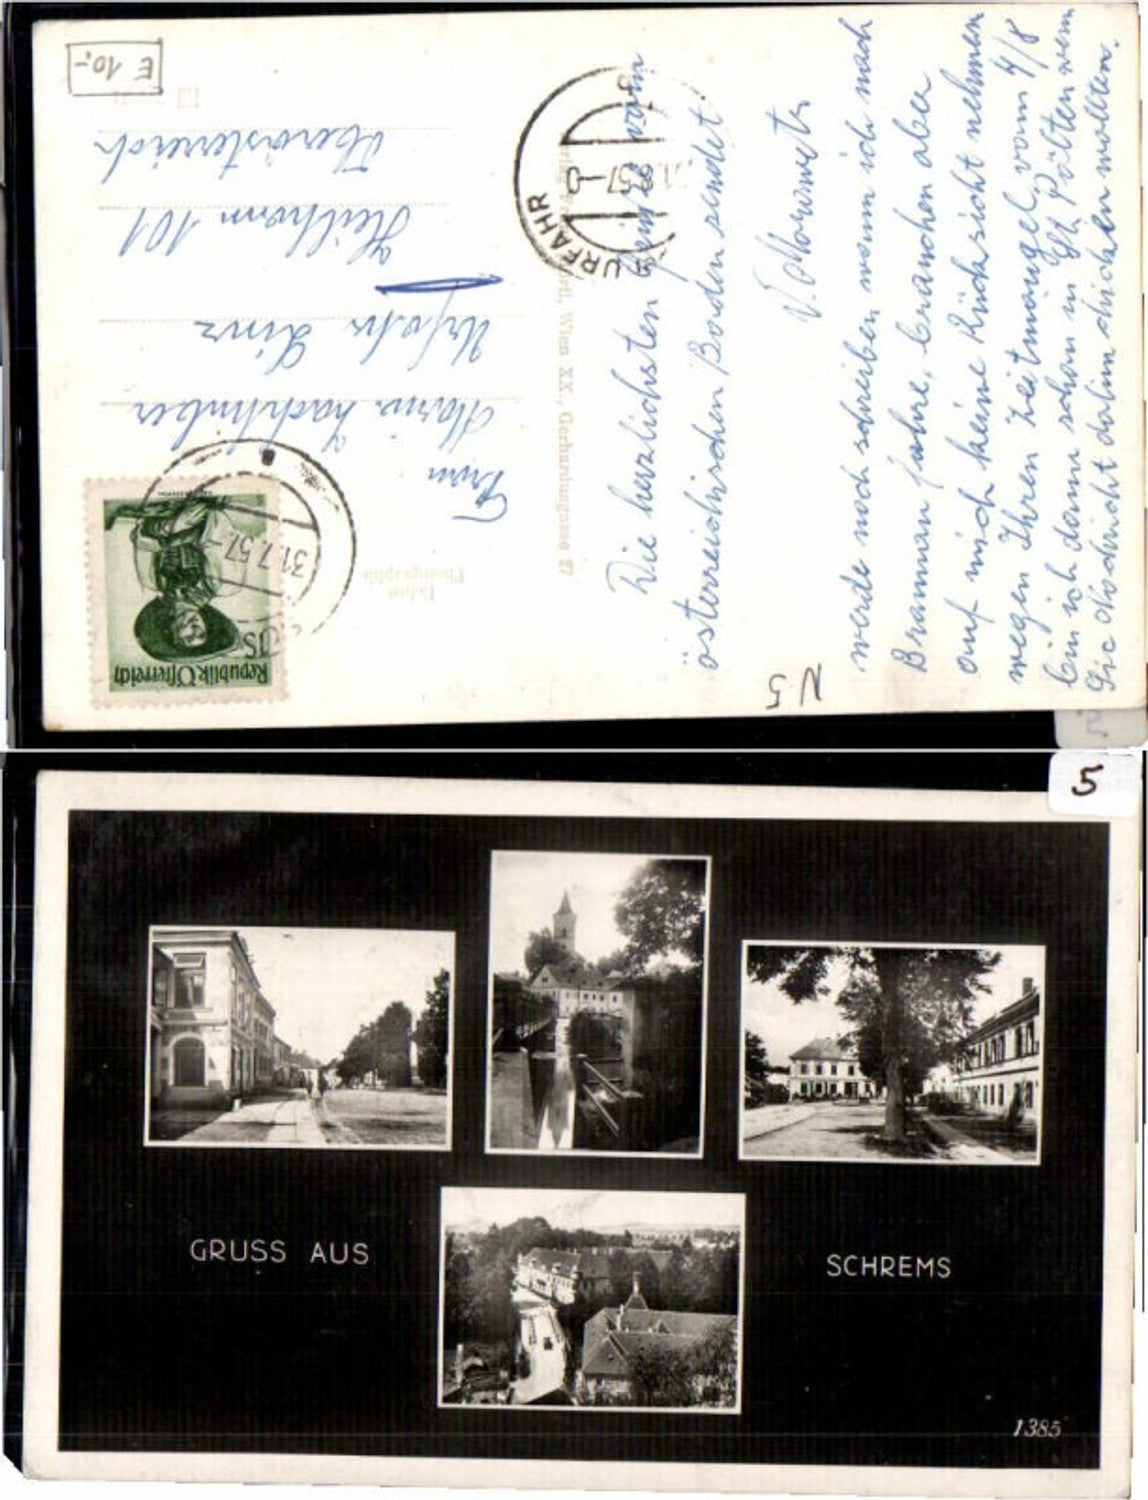 E 10,-
Frau
Maria Zachhuber
Urfahr Linz
Heilham 101
Oberösterreich
Republik Österreich
1S
31.7.57
URFAHR
Echte
Photographie
Wien XX., Gerhardusgasse 27
Die herzlichsten Grüße vom
österreichischen Boden sendet
werde noch schreiben wann ich nach
Braunau fahre, brauchen aber
auf mich keine Rücksicht nehmen
wegen Ihren Zeitmangel, vom 4/8
bin ich dann schon in St Pölten wenn
Sie Nachricht dahin schicken wollten.
N 5
5
GRUSS AUS
SCHREMS
1385